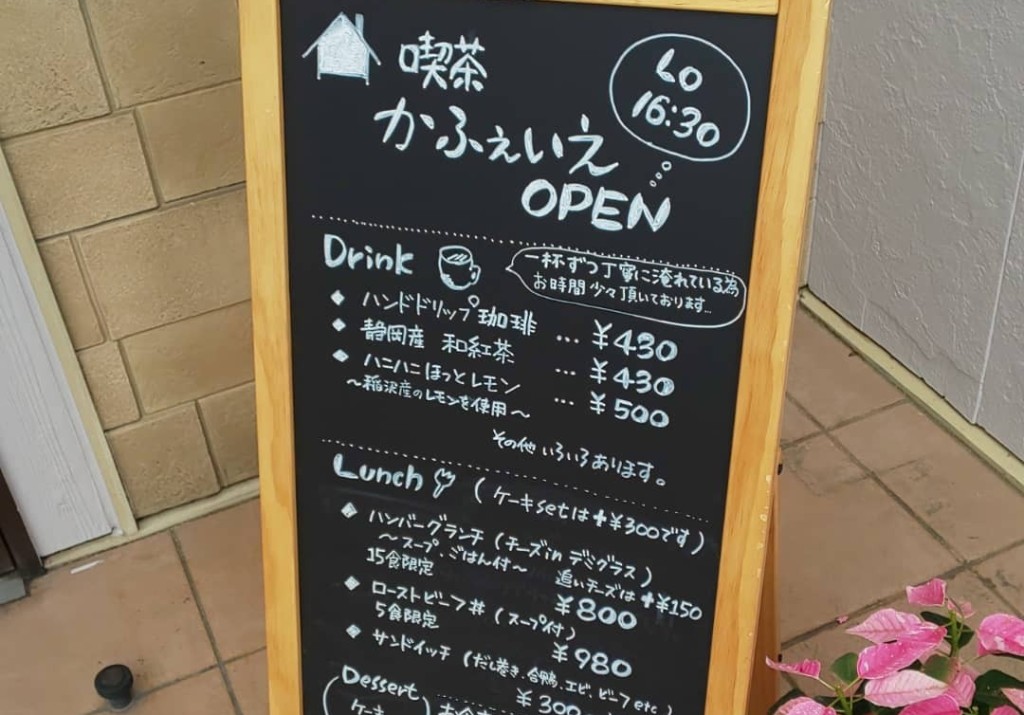 喫茶
かふぇいえ
OPEN
LO
16:30
Drink
一杯ずつ丁寧に淹れている為
お時間少々頂いております…
◆ ハンドドリップ珈琲 … ¥430
◆ 静岡産 和紅茶 … ¥430
◆ ハニハニほっとレモン … ¥500
～稲沢産のレモンを使用～
その他いろいろあります。
Lunch (ケーキsetは+¥300です)
◆ ハンバーグランチ (チーズin デミグラス)
～スープ、ごはん付～ 追いチーズは+¥150
15食限定 ¥800
◆ ローストビーフ丼 (スープ付)
5食限定 ¥980
◆ サンドイッチ (だし巻き、合鴨、エビ、ビーフetc)
¥300
Dessert
ケーキ